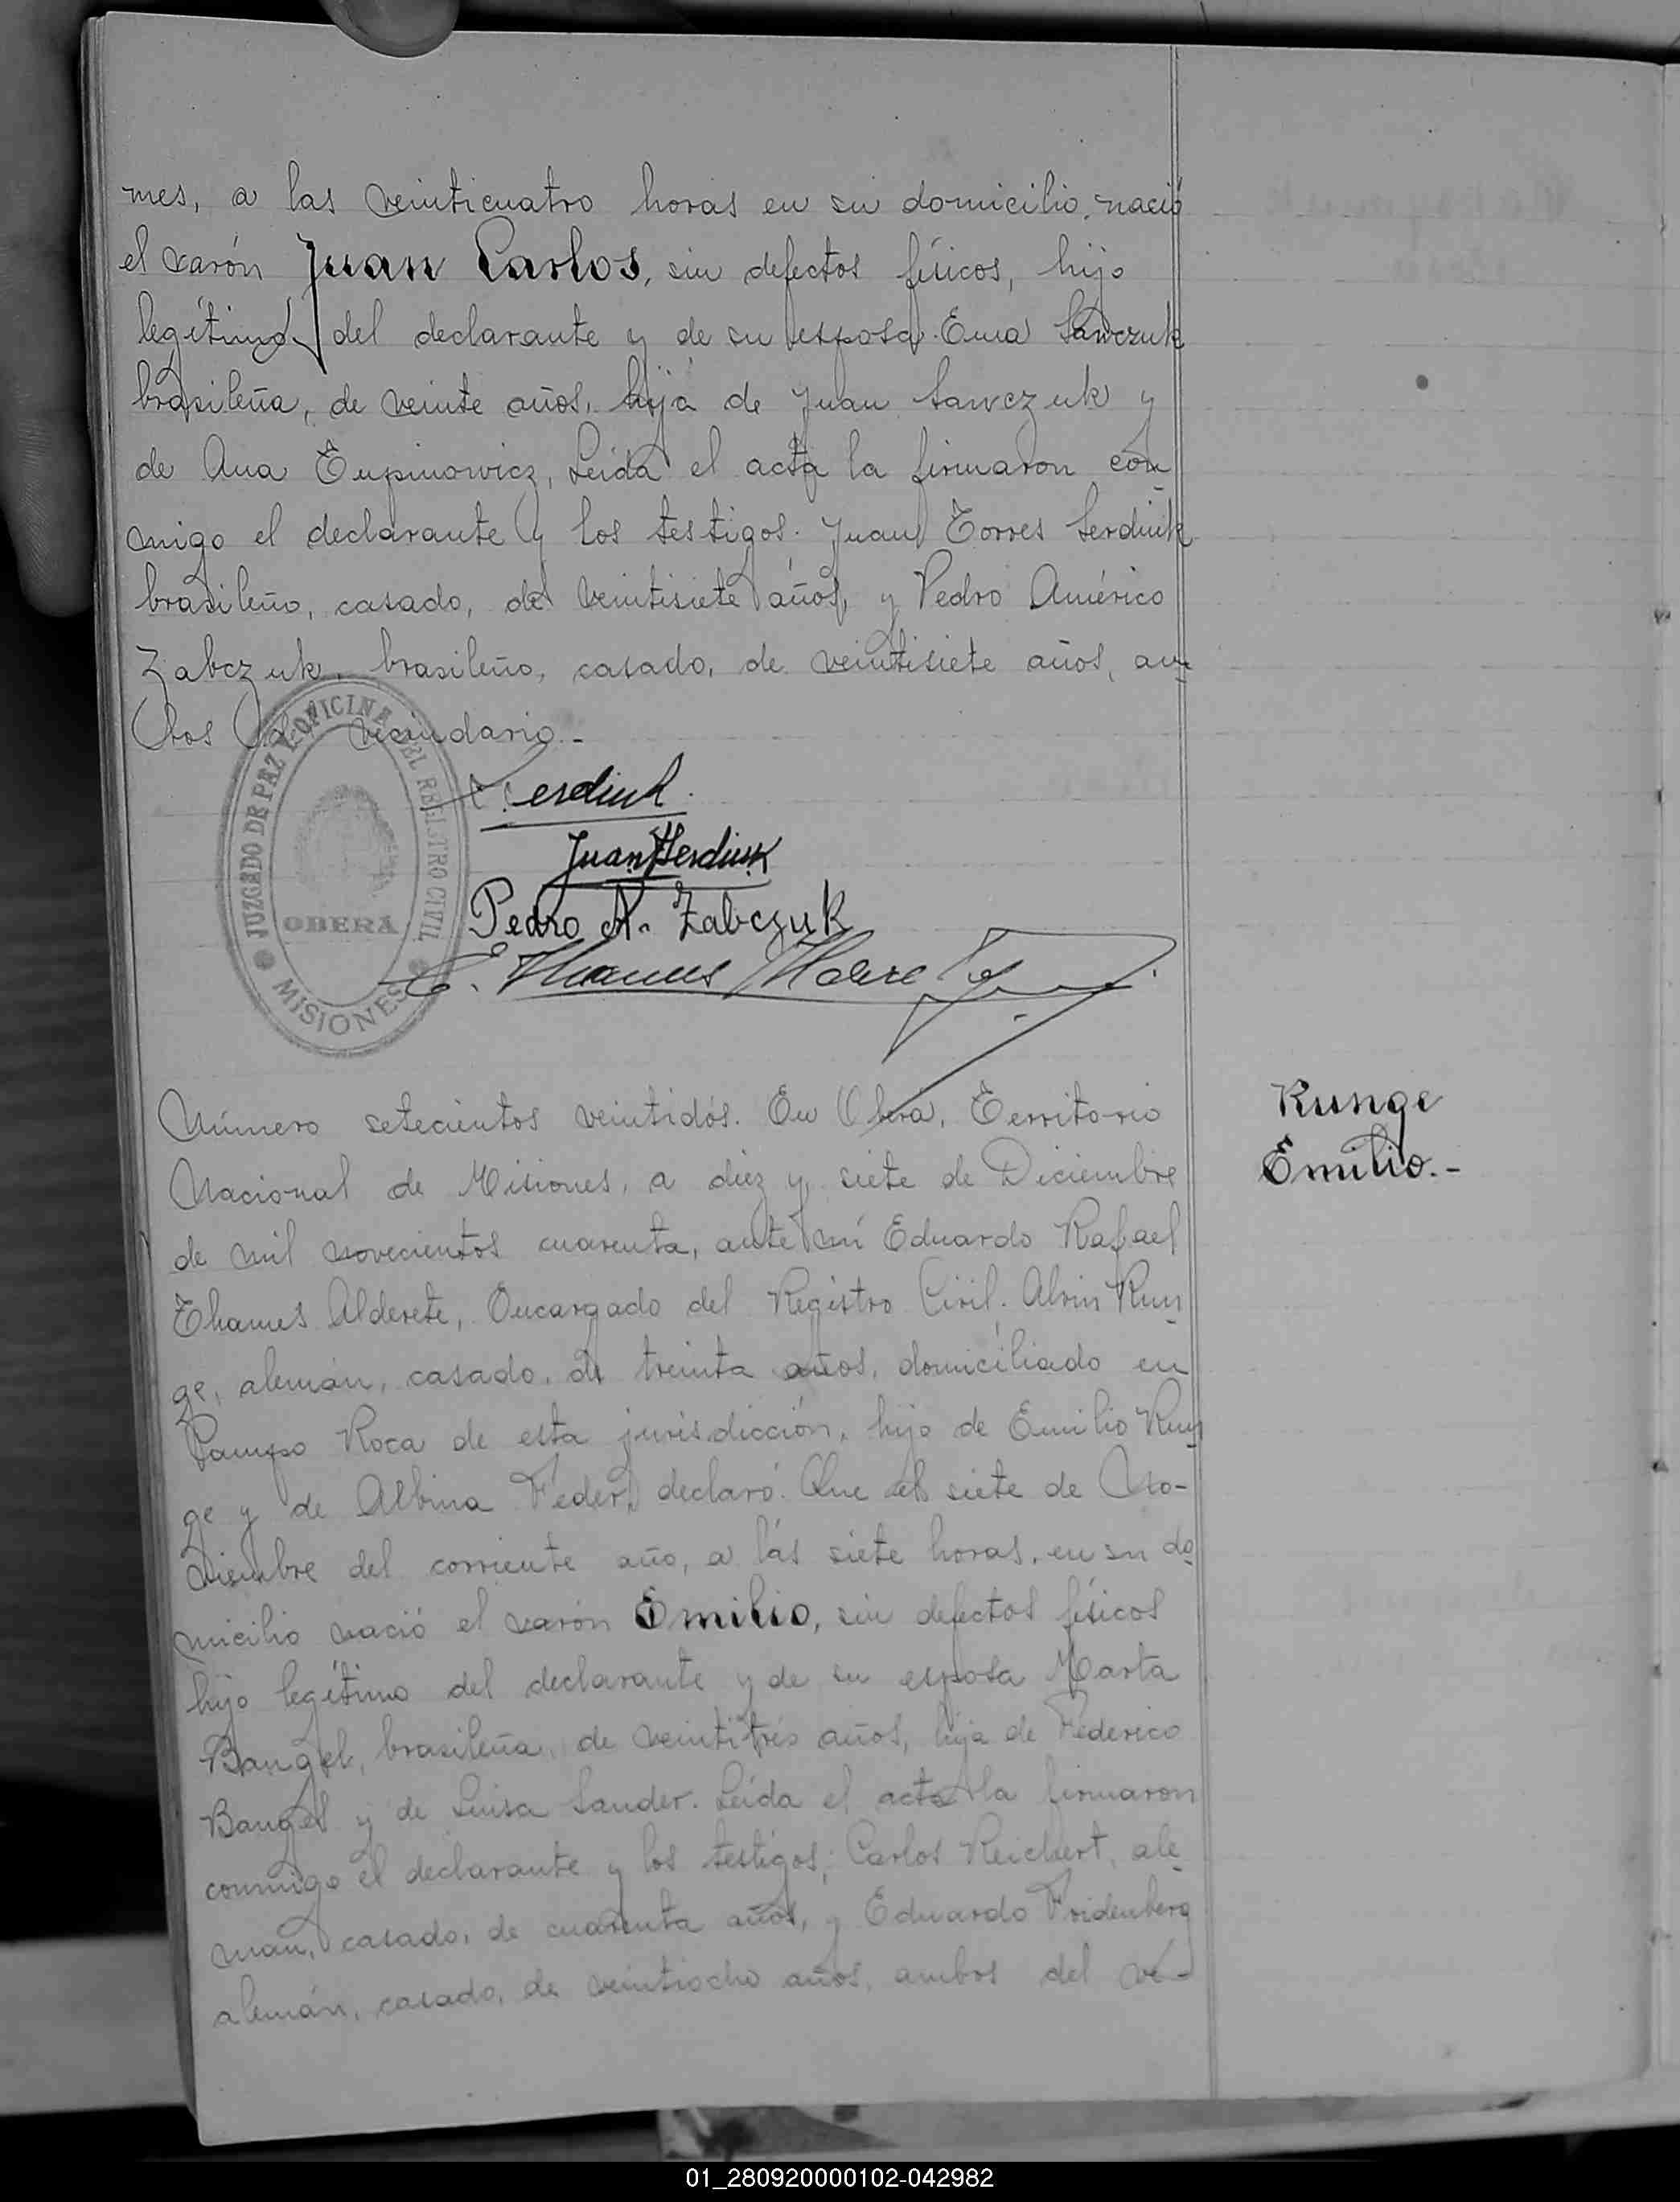 mes, a las veinticuatro horas en su domicilio, nació
el varón Juan Carlos, sin defectos físicos, hijo
legítimo del declarante y de su esposa Ema Sawczuk
brasileña, de veinte años, hija de Juan Sawczuk y
de Ana Tupinowicz, Leída el acta la firmaron con
migo el declarante y los testigos. Juan Torres Serdiuk
brasileño, casado, de veintisiete años, y Pedro Américo
Zabczuk, brasileño, casado, de veintisiete años, am-
bos del vecindario.-
JUZGADO DE PAZ Y OFICINA DEL REGISTRO CIVIL
OBERA
MISIONES
Serdiuk
Juan T Serdiuk
Pedro A. Zabczuk
E. Thames Alderete
Número setecientos veintidós. En Oberá, Territorio
Nacional de Misiones, a diez y siete de Diciembre
de mil novecientos cuarenta, ante mí Eduardo Rafael
Thames Alderete, Encargado del Registro Civil. Alvin Run
ge, alemán, casado, de treinta años, domiciliado en
Pampo Roca de esta jurisdicción, hijo de Emilio Run
ge y de Albina Feder, declaró: Que el siete de No-
viembre del corriente año, a las siete horas, en su do
micilio nació el varón Emilio, sin defectos físicos
hijo legítimo del declarante y de su esposa Marta
Bangel, brasileña, de veintitrés años, hija de Federico
Bangel y de Luisa Sander. Leída el acta la firmaron
conmigo el declarante y los testigos; Carlos Reichert, ale
mán, casado, de cuarenta años, y Eduardo Fridenberg
alemán, casado, de veintiocho años, ambos del ve-
Runge
Emilio.-
01_280920000102-042982